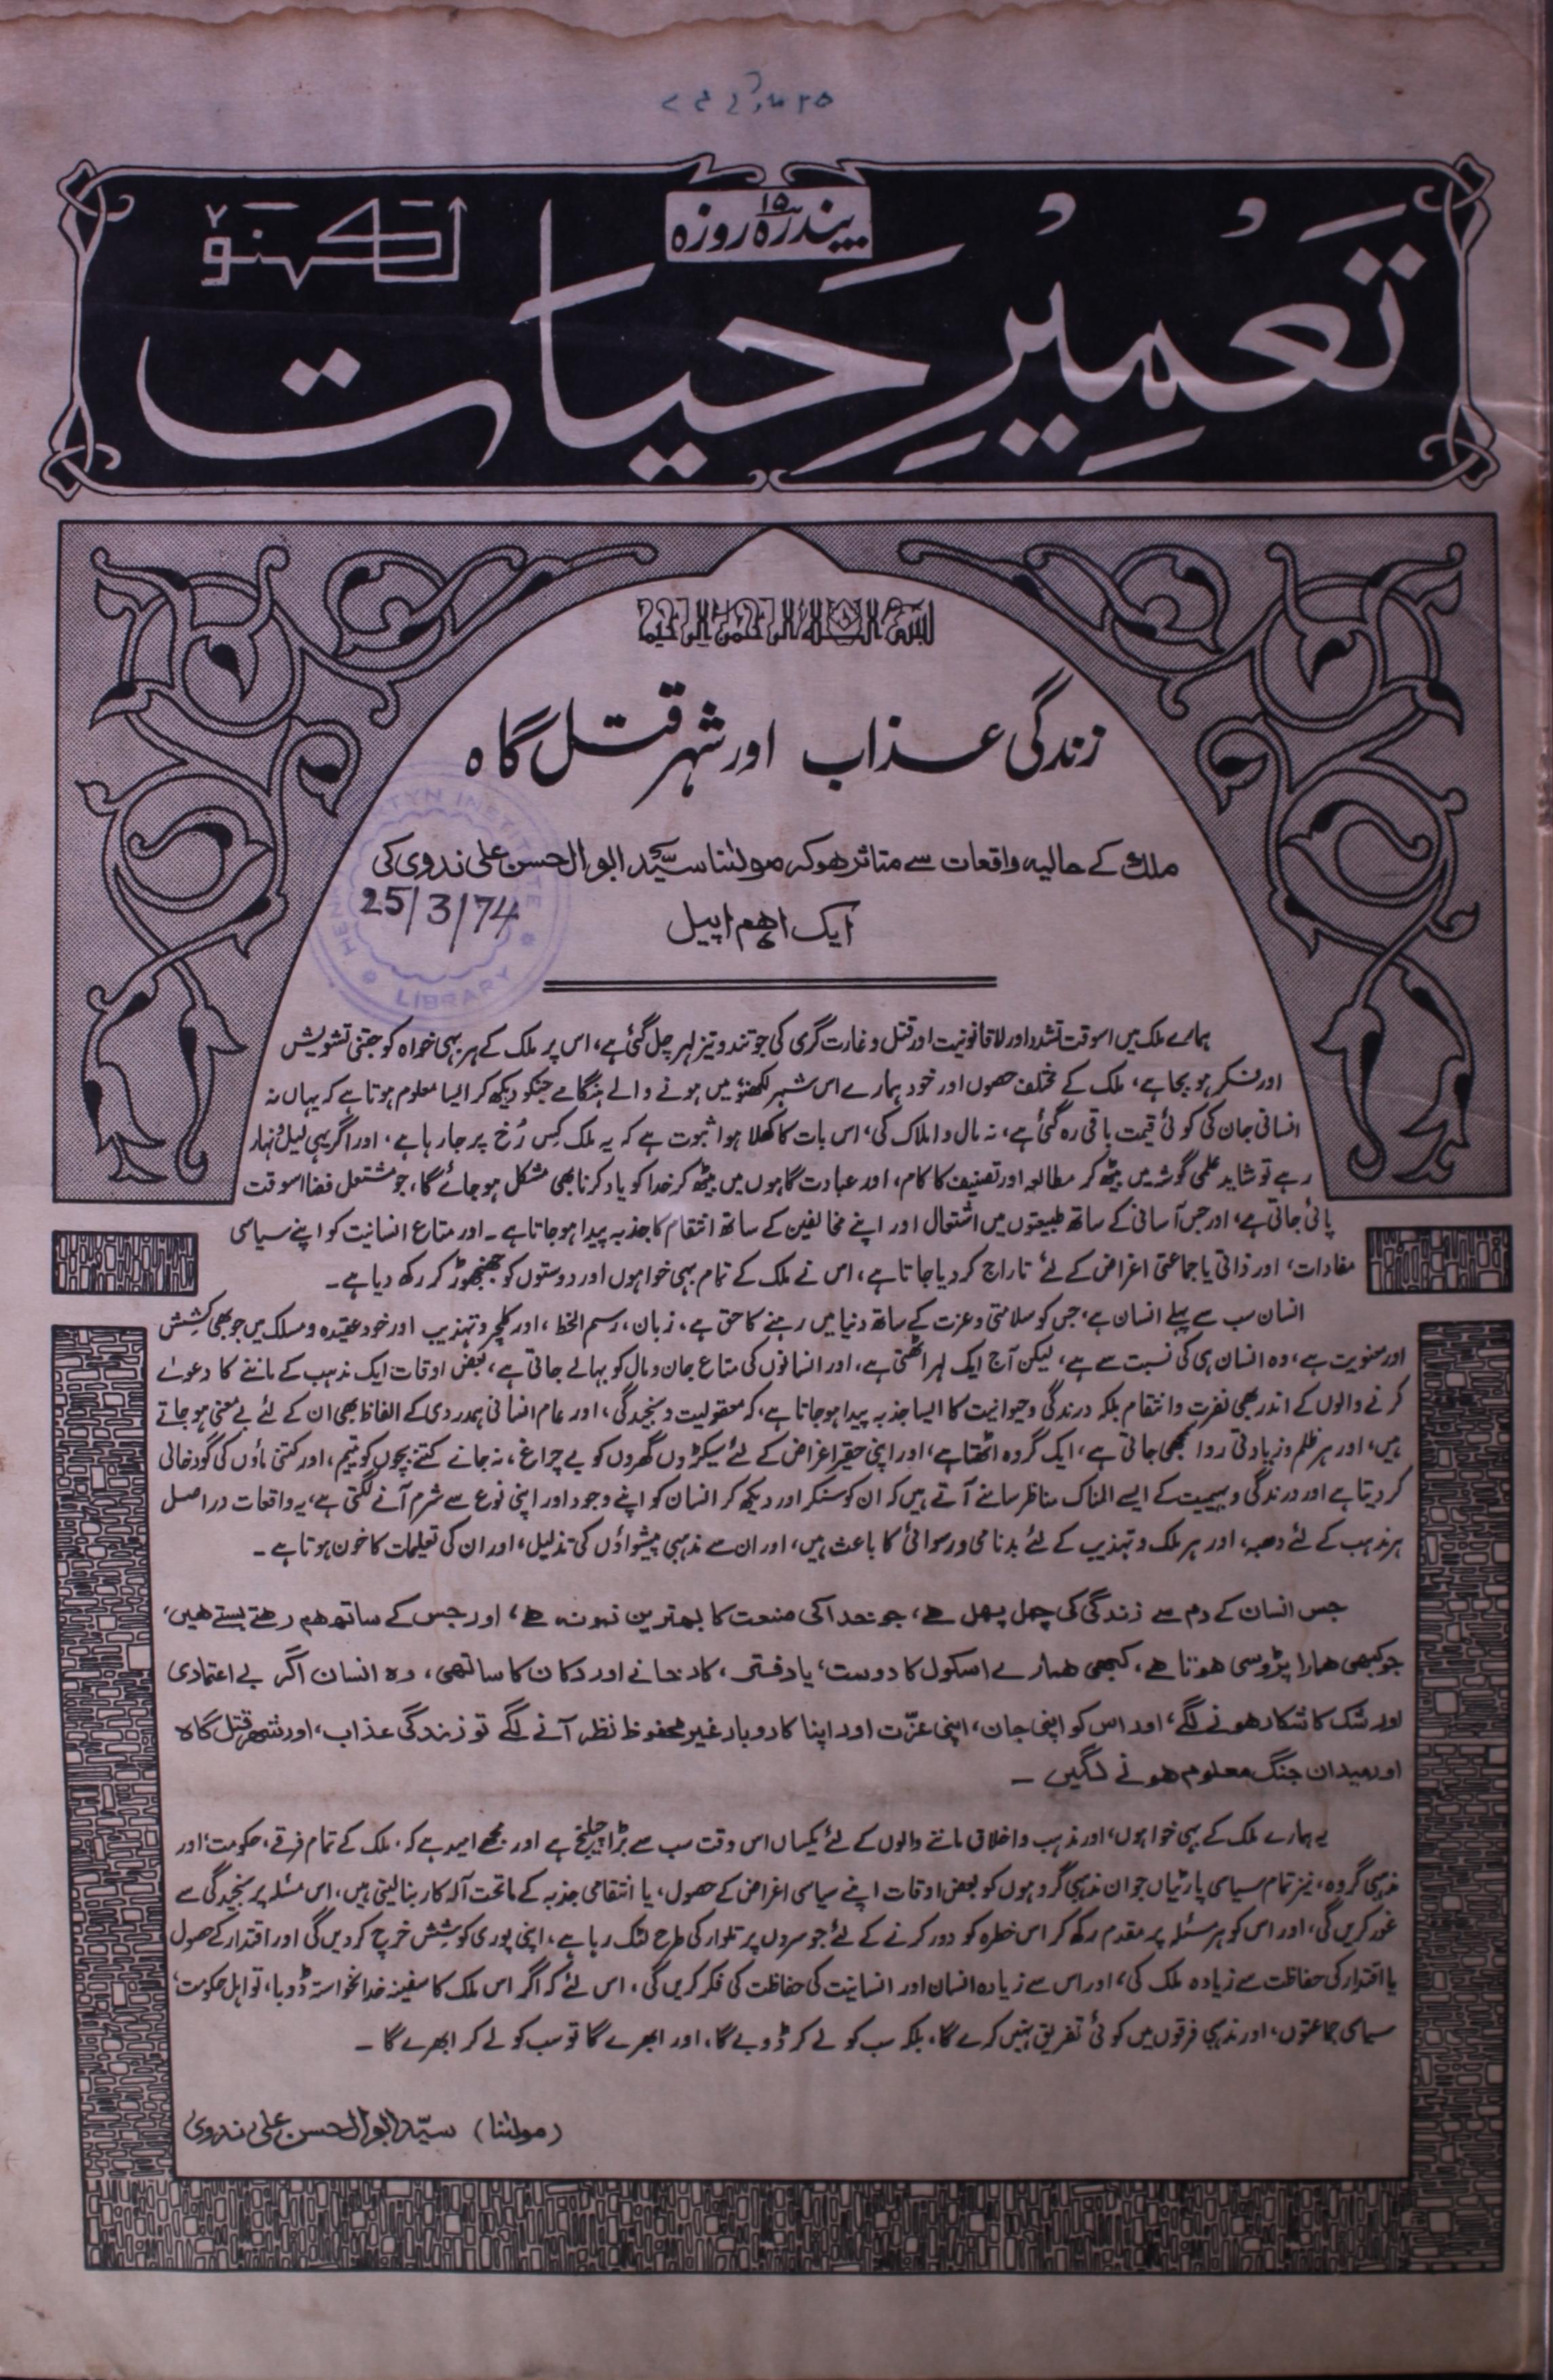 پندرہ ۱۵ روزہ
تعمیرِ حیات
لکھنؤ
بسم اللہ الرحمن الرحیم
زندگی عذاب اور شہر قتل گاہ
ملک کے حالیہ واقعات سے متاثر ہوکر مولٰنا سیّد ابوالحسن علی ندوی کی
25/3/74
ایک اہم اپیل
HENRY MARTYN INSTITUTE
LIBRARY
ہمارے ملک میں اسوقت تشدد اور لاقانونیت اور قتل و غارت گری کی جو تند و تیز لہر چل گئی ہے، اس پر ملک کے ہر بہی خواہ کو جتنی تشویش
اور فکر ہو بجا ہے، ملک کے مختلف حصوں اور خود ہمارے اس شہر لکھنؤ میں ہونے والے ہنگامے جنکو دیکھ کر ایسا معلوم ہوتا ہے کہ یہاں نہ
انسانی جان کی کوئی قیمت باقی رہ گئی ہے، نہ مال و املاک کی، اس بات کا کھلا ہوا ثبوت ہے کہ یہ ملک کِس رُخ پر جا رہا ہے، اور اگر یہی لیل و نہار
رہے تو شاید علمی گوشہ میں بیٹھ کر مطالعہ اور تصنیف کا کام، اور عبادت گاہوں میں بیٹھ کر خدا کو یاد کرنا بھی مشکل ہو جائے گا، جو مشتعل فضا اسوقت
پائی جاتی ہے، اور جس آسانی کے ساتھ طبیعتوں میں اشتعال اور اپنے مخالفین کے ساتھ انتقام کا جذبہ پیدا ہو جاتا ہے۔ اور متاع انسانیت کو اپنے سیاسی
مفادات، اور ذاتی یا جماعتی اغراض کے لئے تاراج کر دیا جاتا ہے، اس نے ملک کے تمام بہی خواہوں اور دوستوں کو جھنجھوڑ کر رکھ دیا ہے۔
انسان سب سے پہلے انسان ہے، جس کو سلامتی و عزت کے ساتھ دنیا میں رہنے کا حق ہے، زبان، رسم الخط، اور کلچر و تہذیب اور خود عقیدہ و مسلک میں جو بھی کشش
اور معنویت ہے، وہ انسان ہی کی نسبت سے ہے، لیکن آج ایک لہر اٹھتی ہے، اور انسانوں کی متاع جان و مال کو بہا لے جاتی ہے، بعض اوقات ایک مذہب کے ماننے کا دعوےٰ
کرنے والوں کے اندر بھی نفرت و انتقام بلکہ درندگی و حیوانیت کا ایسا جذبہ پیدا ہو جاتا ہے، کہ معقولیت و سنجیدگی، اور عام انسانی ہمدردی کے الفاظ بھی ان کے لئے بے معنی ہو جاتے
ہیں، اور ہر ظلم و زیادتی روا سمجھی جاتی ہے، ایک گروہ اٹھتا ہے، اور اپنی حقیر اغراض کے لئے سیکڑوں گھروں کو بے چراغ، نہ جانے کتنے بچوں کو یتیم، اور کتنی ماؤں کی گود خالی
کر دیتا ہے اور درندگی و بہیمیت کے ایسے المناک مناظر سامنے آتے ہیں کہ ان کو سنکر اور دیکھ کر انسان کو اپنے وجود اور اپنی نوع سے شرم آنے لگتی ہے، یہ واقعات دراصل
ہر مذہب کے لئے دھبہ، اور ہر ملک و تہذیب کے لئے بدنامی و رسوائی کا باعث ہیں، اور ان سے مذہبی پیشواؤں کی تذلیل، اور ان کی تعلیمات کا خون ہوتا ہے۔
جس انسان کے دم سے زندگی کی چہل پہل ہے، جو خدا کی صنعت کا بہترین نمونہ ہے، اور جس کے ساتھ ہم رہتے بستے ہیں،
جو کبھی ہمارا پڑوسی ہوتا ہے، کبھی ہمارے اسکول کا دوست، یا دفتر، کارخانے اور دکان کا ساتھی، وہ انسان اگر بے اعتمادی
اور شک کا شکار ہونے لگے، اور اس کو اپنی جان، اپنی عزّت اور اپنا کاروبار غیر محفوظ نظر آنے لگے تو زندگی عذاب، اور شہر قتل گاہ
اور میدان جنگ معلوم ہونے لگیں۔
یہ ہمارے ملک کے بہی خواہوں، اور مذہب و اخلاق ماننے والوں کے لئے یکساں اس وقت سب سے بڑا چیلنج ہے اور مجھے امید ہے کہ، ملک کے تمام فرقے، حکومت، اور
مذہبی گروہ، نیز تمام سیاسی پارٹیاں جو ان مذہبی گروہوں کو بعض اوقات اپنے سیاسی اغراض کے حصول، یا انتقامی جذبہ کے ماتحت آلہ کار بنا لیتی ہیں، اس مسئلہ پر سنجیدگی سے
غور کریں گی، اور اس کو ہر مسئلہ پر مقدم رکھ کر اس خطرہ کو دور کرنے کے لئے جو سروں پر تلوار کی طرح لٹک رہا ہے، اپنی پوری کوشش خرچ کر دیں گی اور اقتدار کے حصول
یا اقتدار کی حفاظت سے زیادہ ملک کی، اور اس سے زیادہ انسان اور انسانیت کی حفاظت کی فکر کریں گی، اس لئے کہ اگر اس ملک کا سفینہ خدانخواستہ ڈوبا، تو اہل حکومت،
سیاسی جماعتوں، اور مذہبی فرقوں میں کوئی تفریق نہیں کرے گا، بلکہ سب کو لے کر ڈوبے گا، اور ابھرے گا تو سب کو لے کر ابھرے گا۔
(مولٰنا) سیّد ابوالحسن علی ندوی